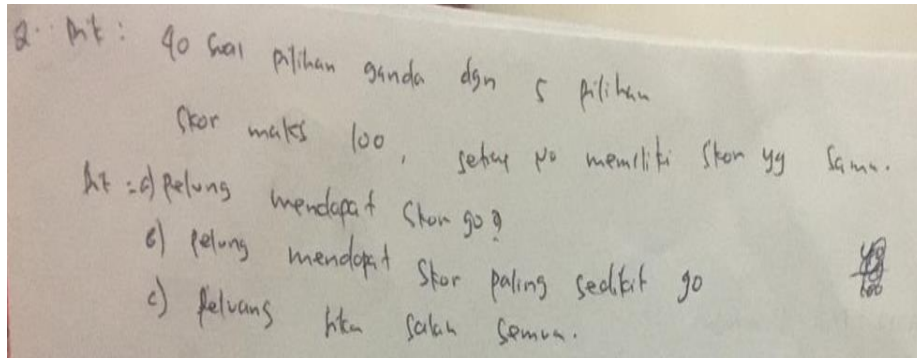 2. Dik : 40 soal pilihan ganda dgn 5 pilihan
Skor maks 100, setiap no memiliki skor yg sama.
Dit = a) pelung mendapat skor 90?
b) pelung mendapat skor paling sedikit 90
c) peluang jika salah semua.